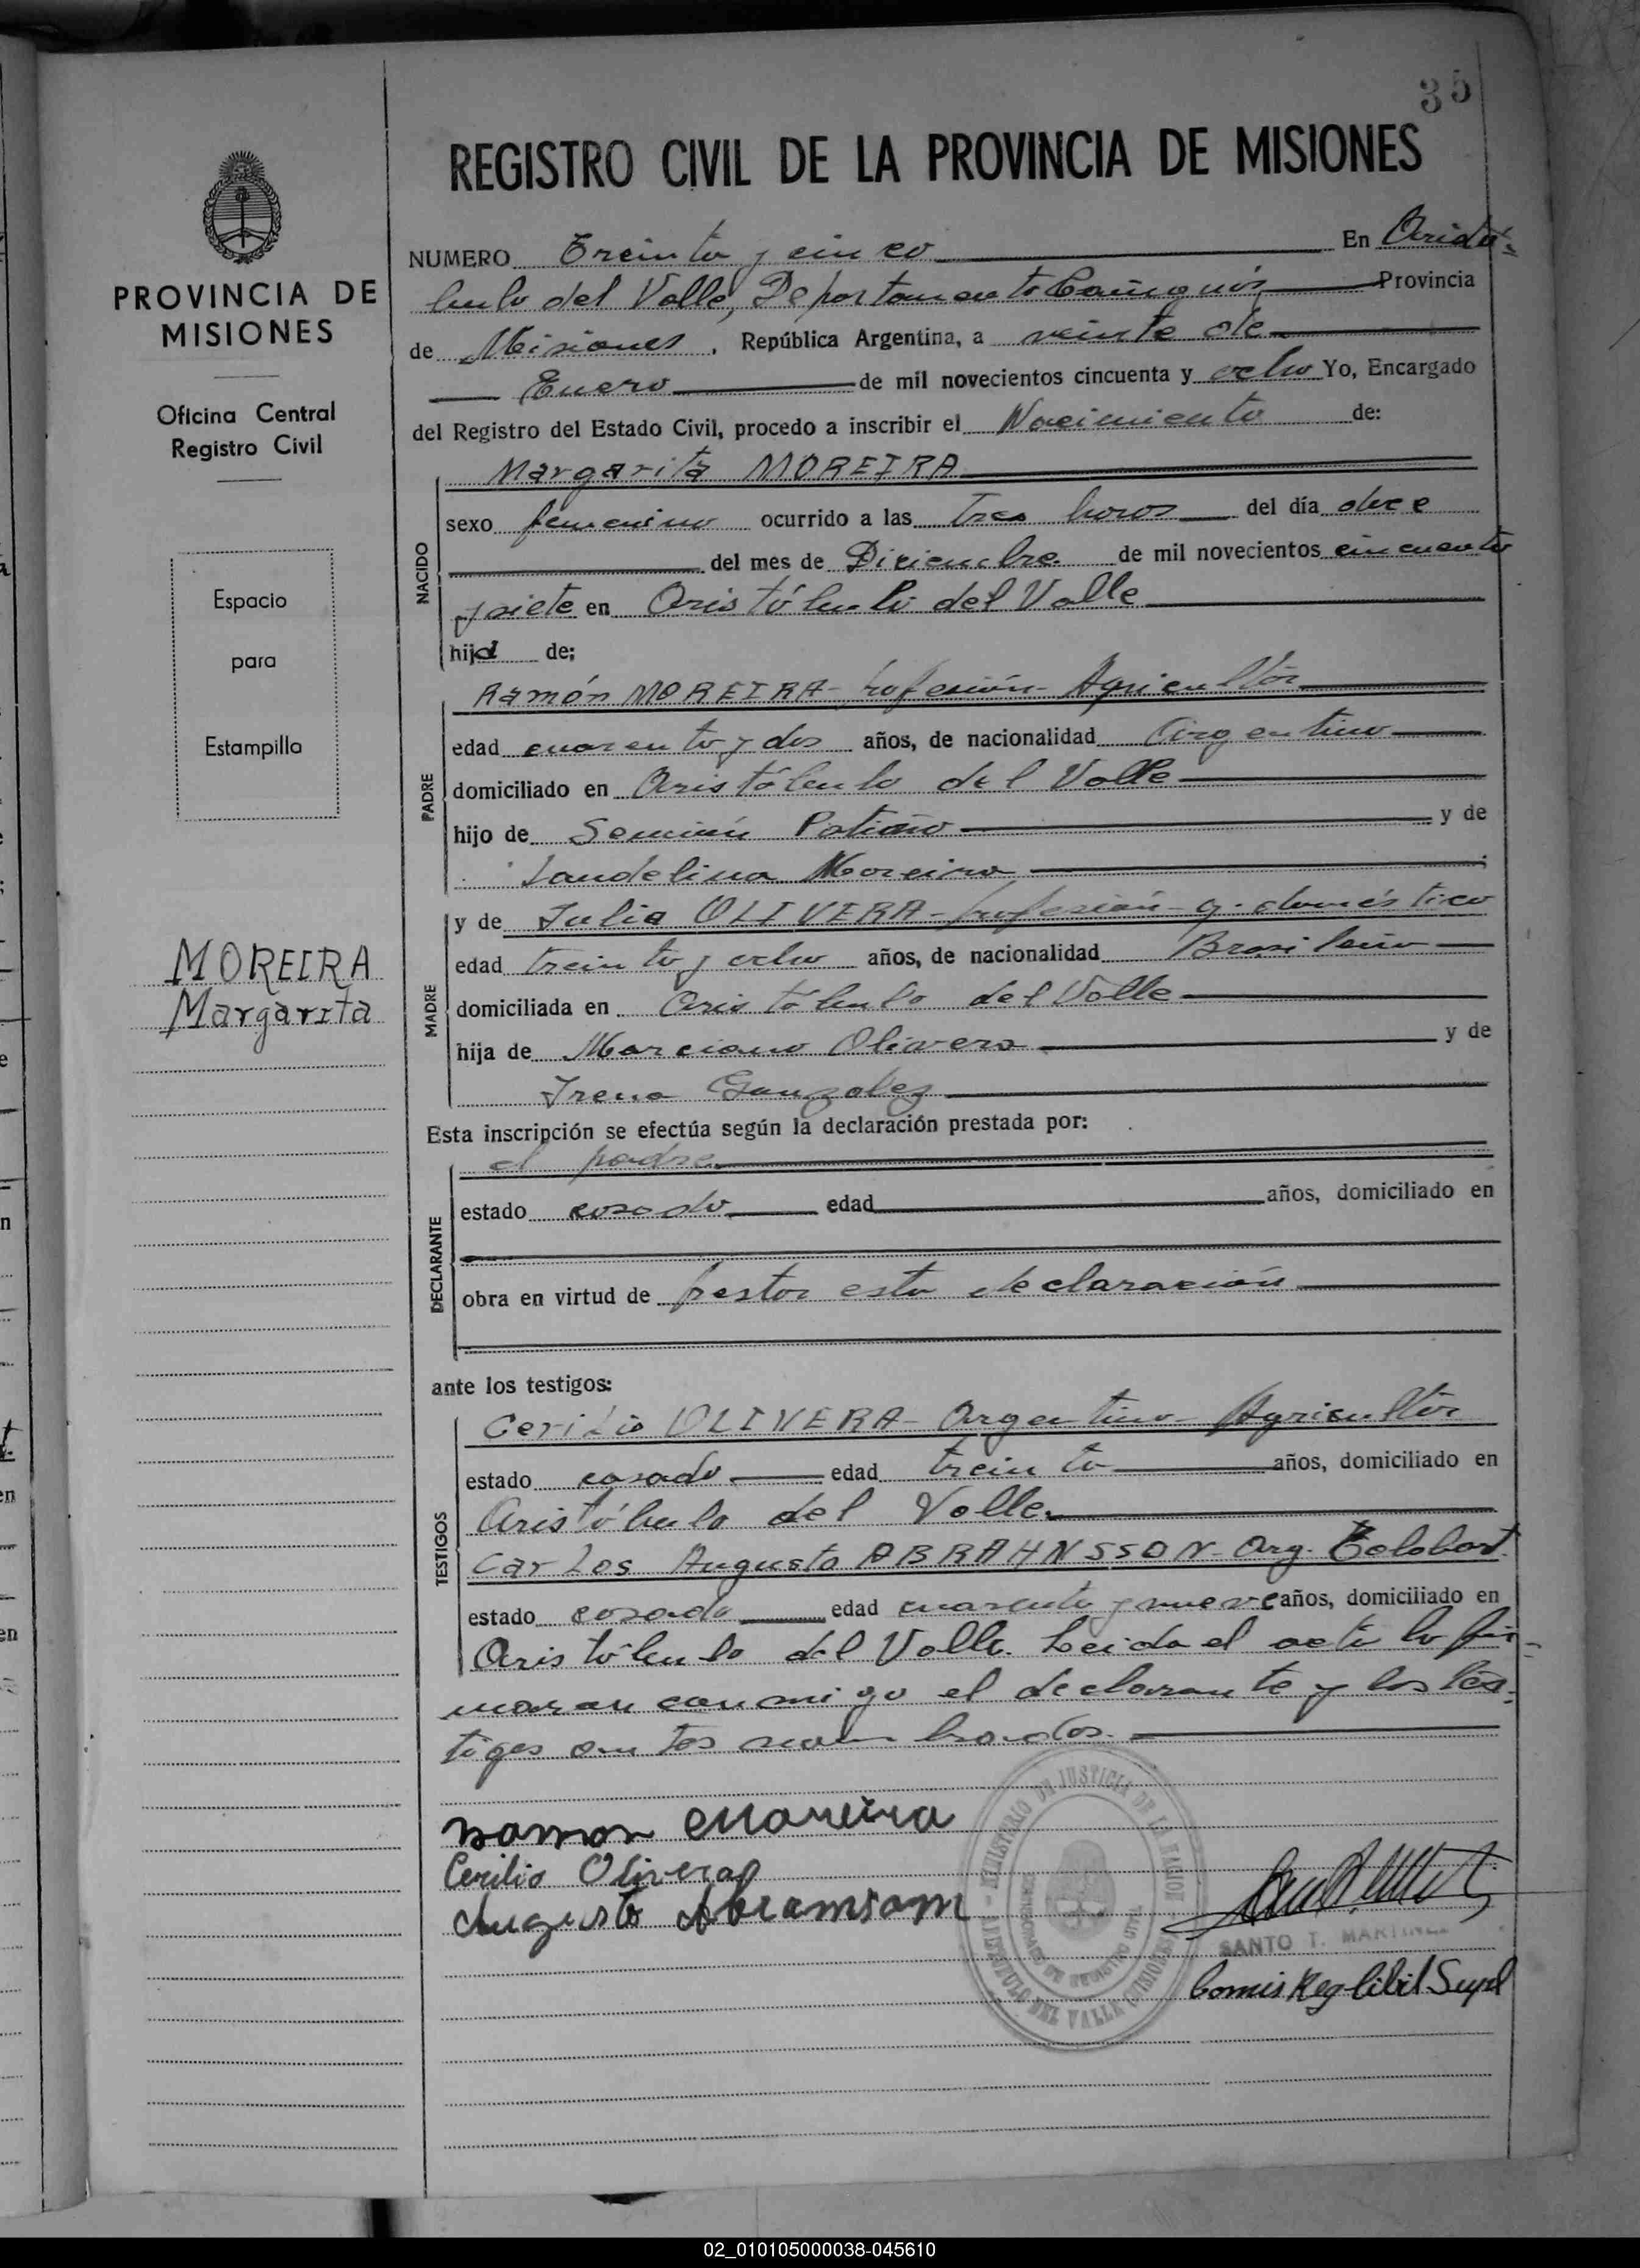 35
REGISTRO CIVIL DE LA PROVINCIA DE MISIONES
PROVINCIA DE
MISIONES
Oficina Central
Registro Civil
Espacio
para
Estampilla
MOREIRA
Margarita
NUMERO Treinta y cinco En Aristó=
bulo del Valle, Departamento Cainguás Provincia
de Misiones, República Argentina, a veinte de
Enero de mil novecientos cincuenta y ocho Yo, Encargado
del Registro del Estado Civil, procedo a inscribir el Nacimiento de:
NACIDO
Margarita MOREIRA
sexo femenino ocurrido a las tres horas del día doce
del mes de Diciembre de mil novecientos cincuenta
y siete en Aristóbulo del Valle
hija de;
PADRE
Ramón MOREIRA- profesión- Agricultor
edad cuarenta y dos años, de nacionalidad Argentino
domiciliado en Aristóbulo del Valle
hijo de Patiño y de
Landelina Moreira
MADRE
y de Julia OLIVERA- profesión- q. doméstico
edad treinta y ocho años, de nacionalidad Brasileña
domiciliada en Aristóbulo del Valle
hija de Marciano Olivera y de
Irena Gonzalez
Esta inscripción se efectúa según la declaración prestada por:
DECLARANTE
el padre
estado casado edad años, domiciliado en
obra en virtud de prestar esta declaración
ante los testigos:
TESTIGOS
Cerilio OLIVERA- Argentino- Agricultor
estado casado edad treinta años, domiciliado en
Aristóbulo del Valle
Carlos Augusto ABRAHNSSON- Arg.
estado casado edad cuarenta y nueve años, domiciliado en
Aristóbulo del Valle. Leida el acta la fir=
maran conmigo el declarante y los tes=
tigos antes nombrados.
Ramon Moreira
Cerilio Olivera
Augusto Abramsom
MINISTERIO DE JUSTICIA DE LA NACION
ARISTOBULO DEL VALLE (MISIONES)
SANTO T. MARTINEZ
Comis Reg Cibil Supl
02_010105000038-045610